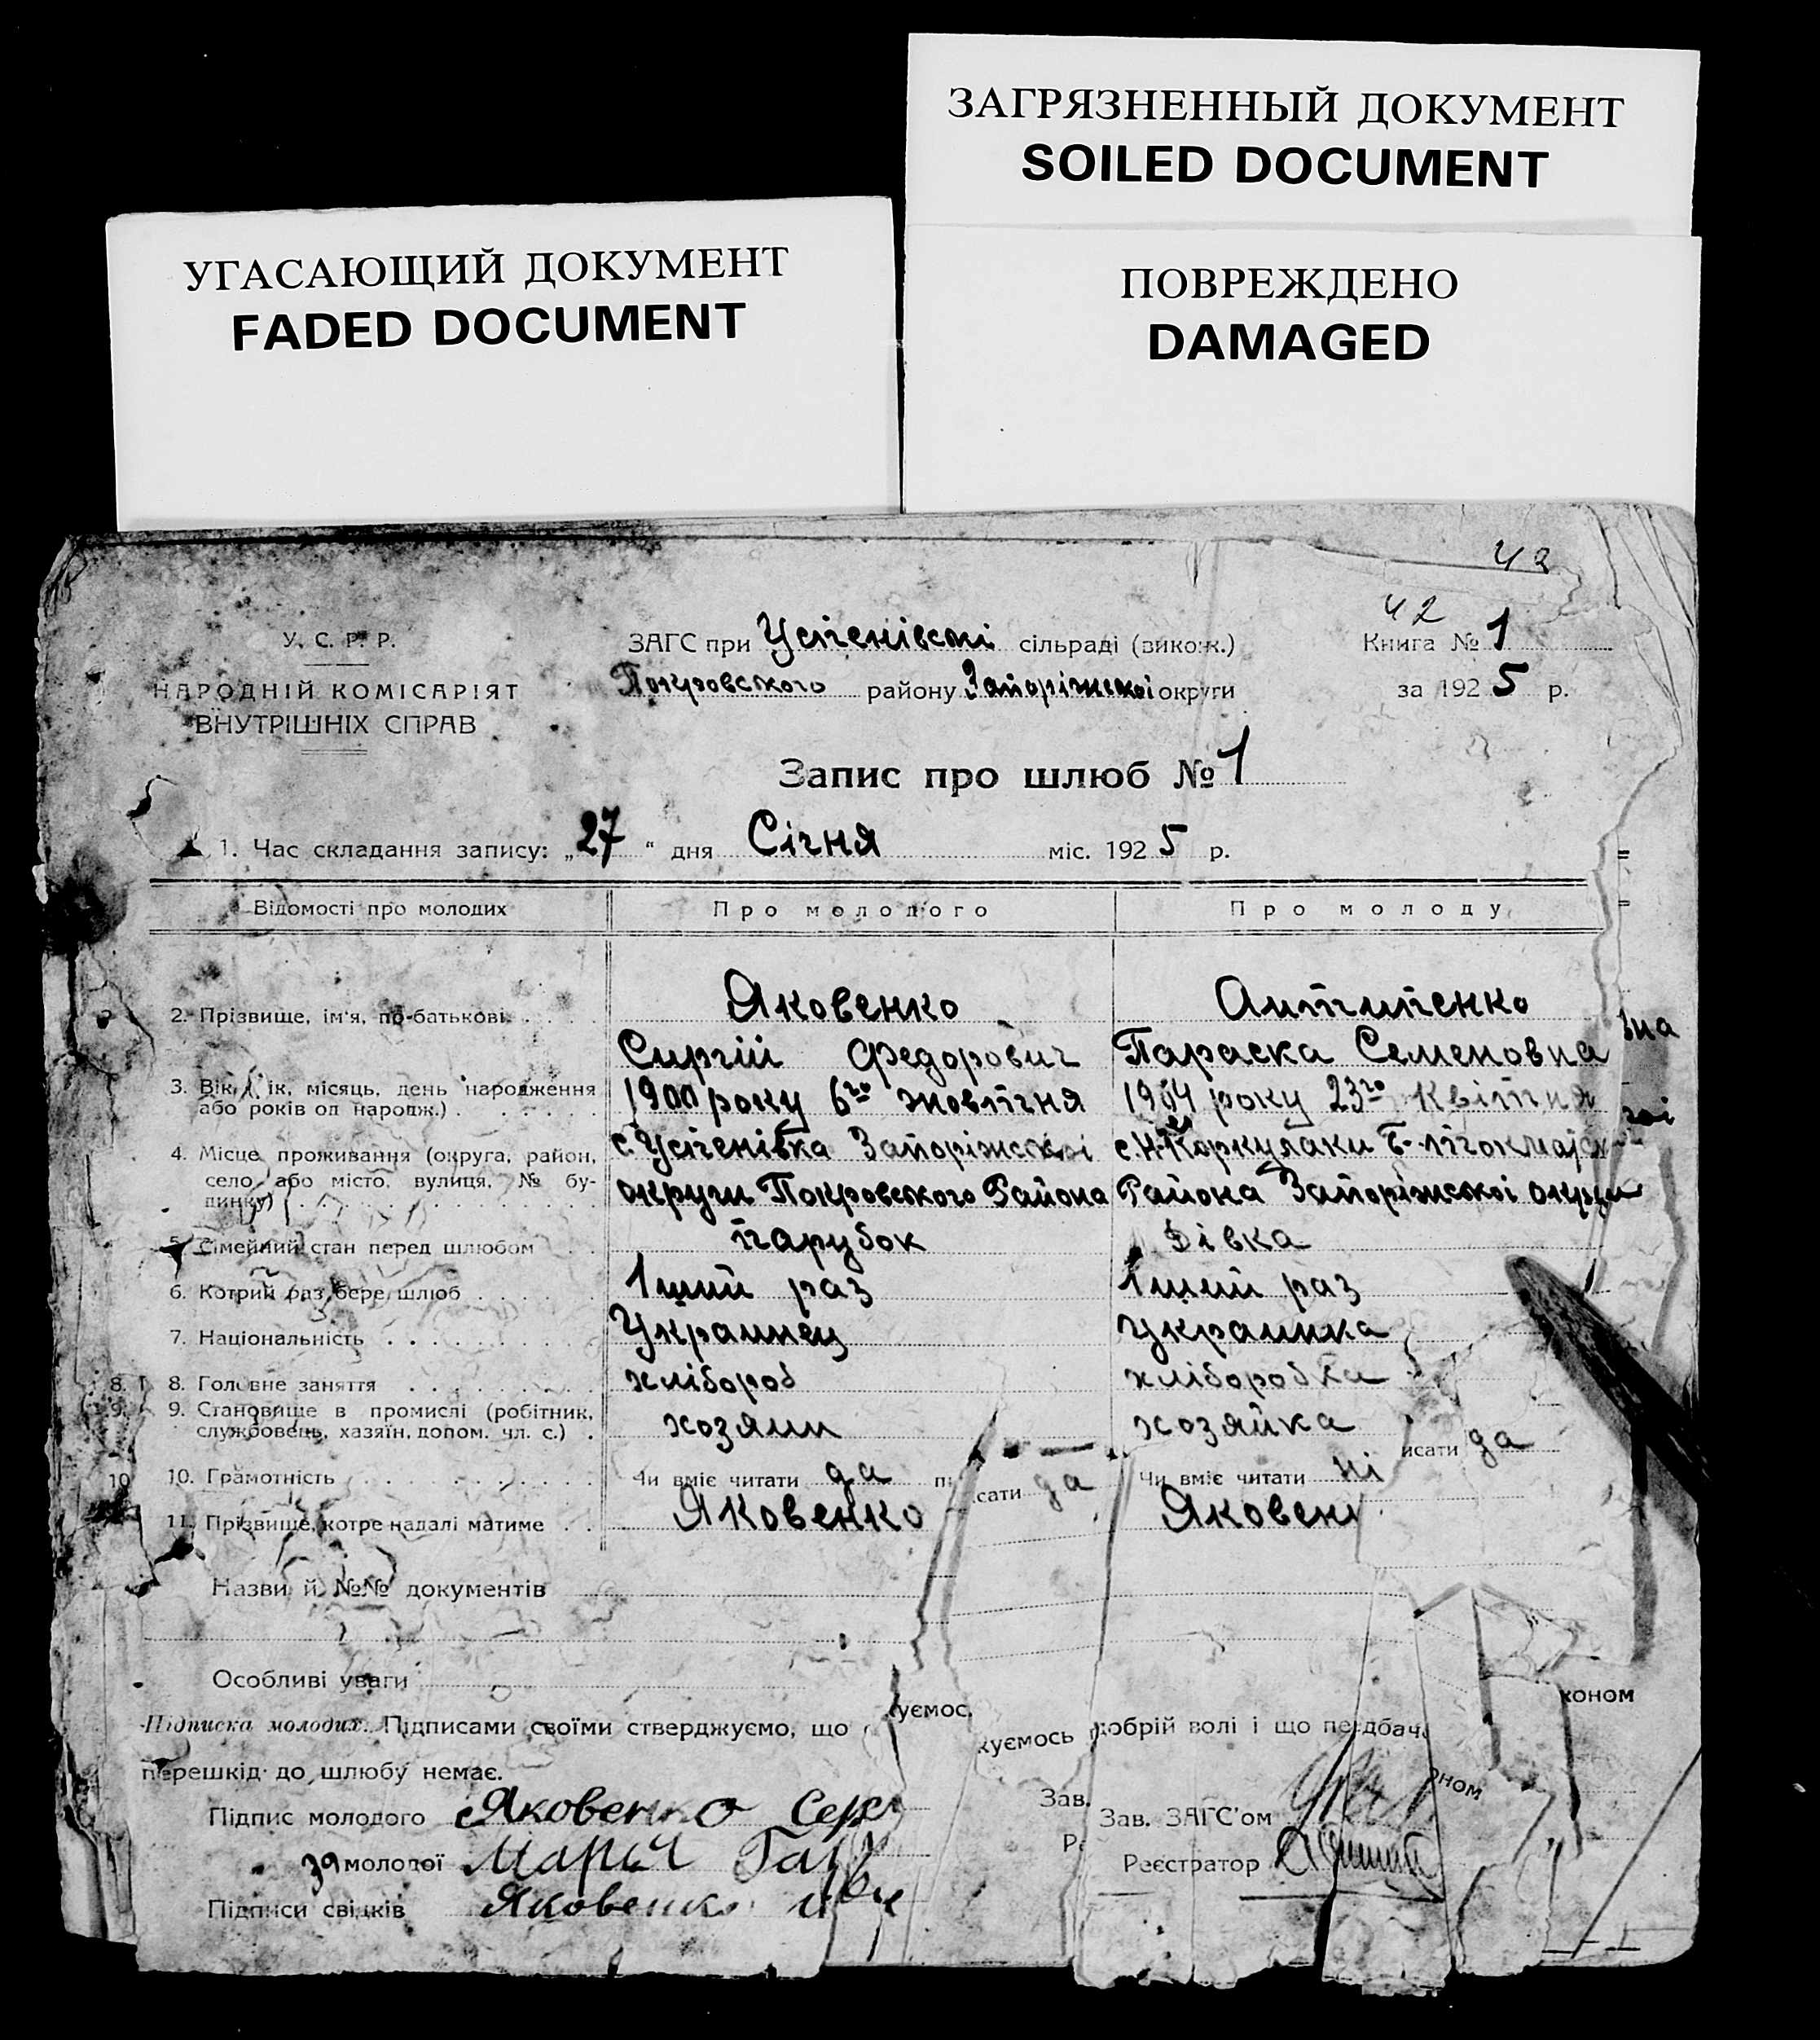 ЗАГРЯЗНЕННЫЙ ДОКУМЕНТ
SOILED DOCUMENT
УГАСАЮЩИЙ ДОКУМЕНТ
FADED DOCUMENT
ПОВРЕЖДЕНО
DAMAGED
42
42
У. С. Р. Р.
НАРОДНІЙ КОМІСАРІЯТ
ВНУТРІШНІХ СПРАВ
ЗАГС при Успенівскі сільраді (викож.)
Покровського району Запоріжскоі округи
Книга № 1
за 1925 р.
Запис про шлюб № 1
1. Час складання запису: „27“ дня Січня міс. 1925 р.
Відомості про молодих Про молодого Про молоду
2. Прізвище, ім'я, по-батькові Яковенко Антипенко
Сиргій Федорович Параска Семеновна
3. Вік, рік, місяць, день народження 1900 року 6го жовтня 1904 року 23го Квітня
або років од народж.)
4. Місце проживання (округа, район, с. Успенівка Запоріжскоі с. Н. Каркулаки Б-
село або місто, вулиця, № бу- округи Покровского Района Района Запоріжскоі округи
динку)
5. Сімейний стан перед шлюбом парубок дівка
6. Котрий раз бере шлюб 1ший раз 1ший раз
7. Національність Украинец Украинка
8. Головне заняття хлібороб хліборобка
9. Становище в промислі (робітник, хозяин хозяйка
службовець, хазяїн, допом. чл. с.)
10. Грамотність Чи вміє читати да сати да Чи вміє читати ні исати да
11. Прізвище, котре надалі матиме Яковенко Яковен
Назви й №№ документів
Особливі уваги
коном
Підписка молодих. Підписами своїми стверджуємо, що уємос. куємось добрій волі і що передбач
перешкід до шлюбу немає. оном
Підпис молодого Яковенко Сер Зав. Зав. ЗАГС'ом
за молодої Мария Реєстратор
Підписи свідків Яковенко